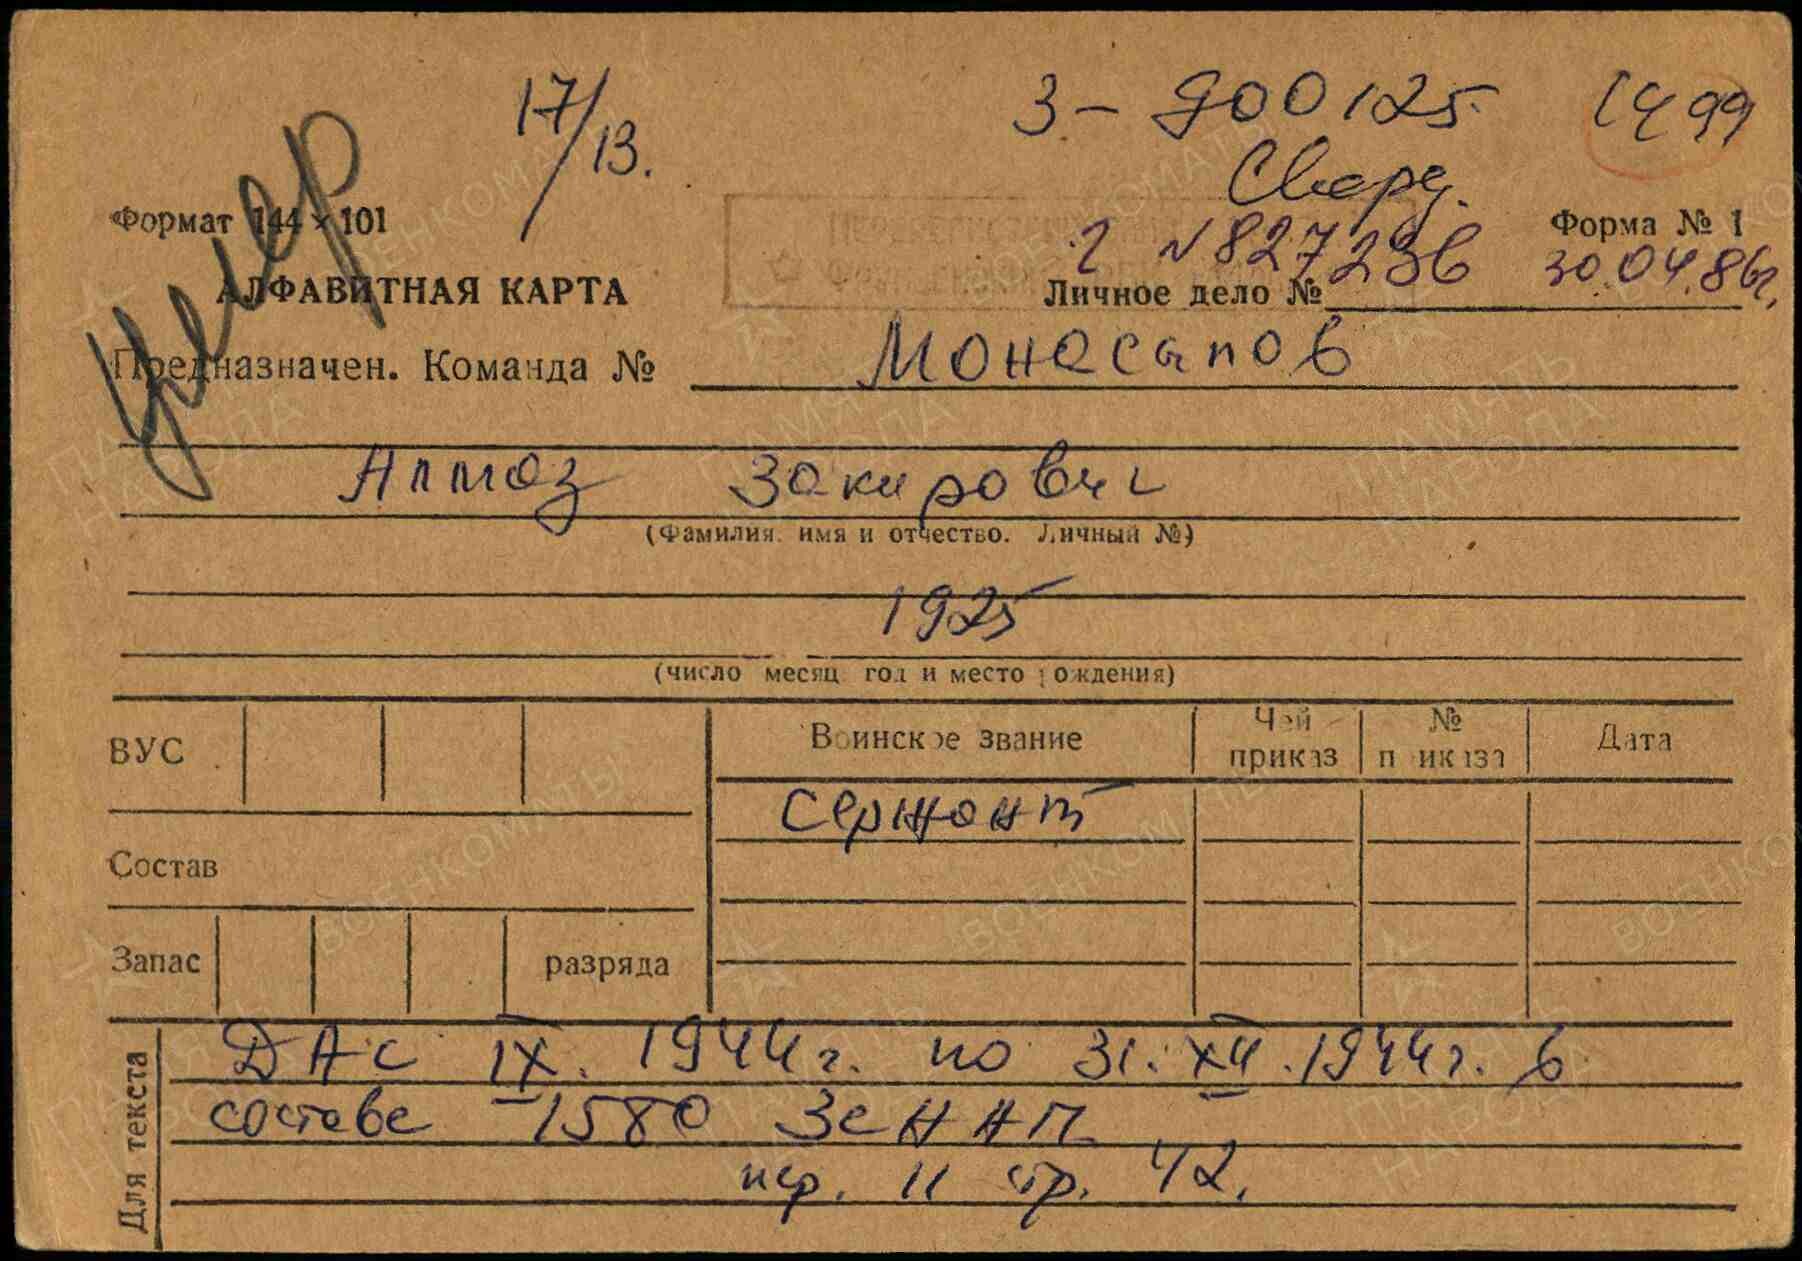 17/13.
3 - 900125 1499
Сверд.
Умер
Формат 144×101
Форма № 1
2 № 827236 30.04.86г.
АЛФАВИТНАЯ КАРТА
Личное дело №
Предназначен. Команда №
Монасыпов
Алмаз Закирович
(Фамилия, имя и отчество. Личный №)
1925
(число месяц год и место рождения)
ВУС
Воинское звание
Чей приказ
№ приказа
Дата
Сержант
Состав
Запас
разряда
Для текста
ДАС IX. 1944г. по 31.XII.1944г. в
составе 1580 Зенап
пер. 11 стр. 42.
ПАМЯТЬ НАРОДА
ВОЕНКОМАТЫ